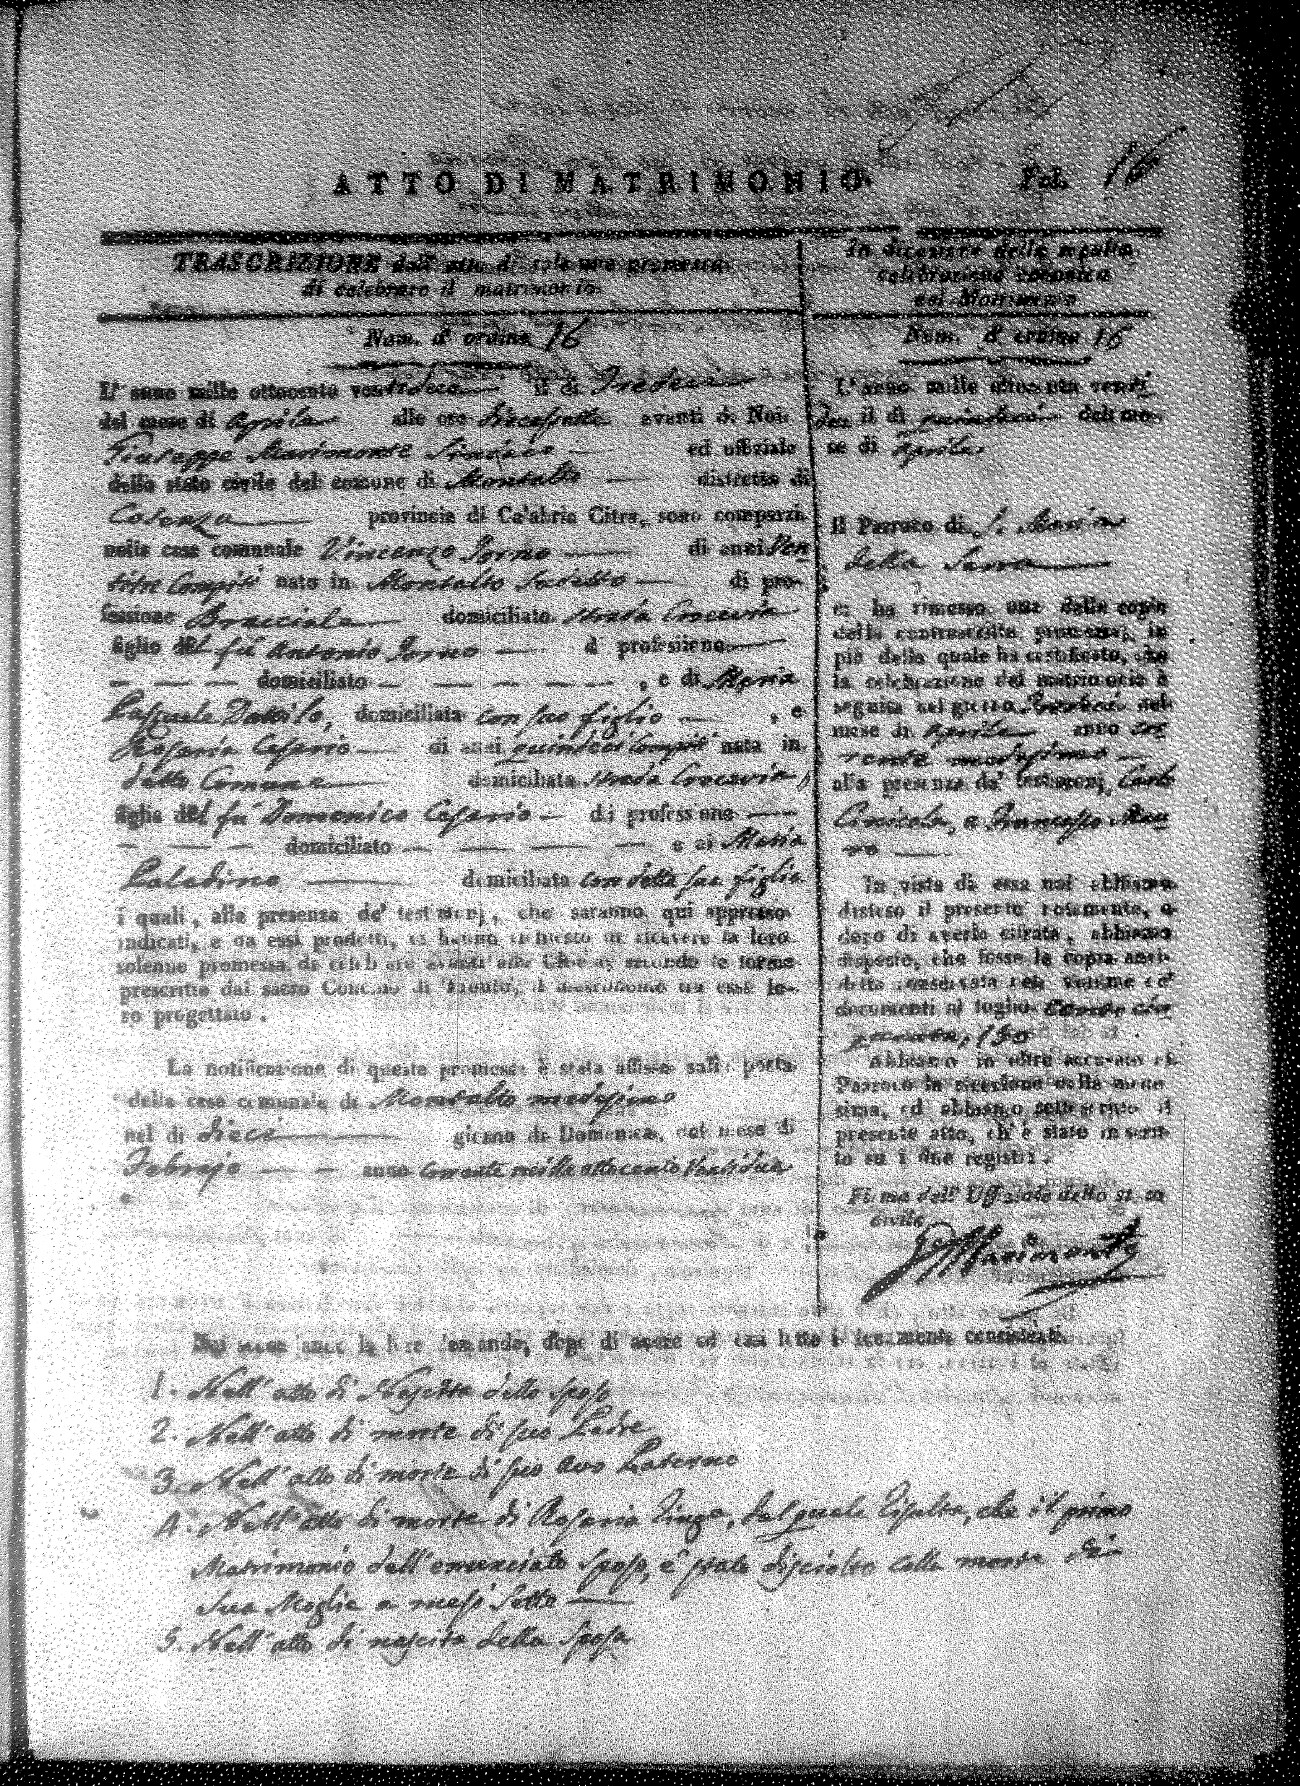 ATTO DI MATRIMONIO. Fol. 16
TRASCRIZIONE dell' atto di solenne promessa
di celebrare il matrimonio.
Num. d' ordine 16
L' anno mille ottocento ventidue il dì Tredeci
del mese di Aprile alle ore diecesette avanti di Noi
Giuseppe Marimonte Sindaco ed uffiziale
dello stato civile del comune di Montalto distretto di
Cosenza provincia di Calabria Citra, sono comparsi
nella casa comunale Vincenzo Porno di anni Ven
titre Compiti nato in Montalto Sudetto di pro-
fessione Bracciale domiciliato strada Crocevia
figlio del fù Antonio Porno di professione
domiciliato , e di Maria
Pasquale domiciliata con suo figlio , e
Rosaria Cesario di anni quindeci Compiti nata in
detto Comune domiciliata strada Crocevia,
figlia del fù Domenico Cesario di professione
domiciliato e di Maria
Paledino domiciliata con detta sua figlia
i quali, alla presenza de' testimonj, che saranno qui appresso
indicati, e da essi prodotti, ci hanno richiesto di ricevere la loro
solenne promessa di celebrare avanti alla Chiesa, secondo le forme
prescritte dal sacro Concilio di Trento, il matrimonio tra essi lo-
ro progettato.
La notificazione di questa promessa è stata affissa sulla porta
della casa comunale di Montalto medesimo
nel dì dieci giorno di Domenica, del mese di
Febrajo anno corrente mille ottocento Ventidue
In dicontro della seguita
celebrazione canonica
del Matrimonio
Num. d' ordine 16
L' anno mille ottocento venti
due il dì quindeci del me-
se di Aprile.
Il Parroco di S. Maria
della Serra
ci ha rimesso una delle copie
della contrascritta promessa, in
piè della quale ha certificato, che
la celebrazione del matrimonio è
seguita nel giorno del
mese di Aprile anno cor
rente medesimo
alla presenza de' testimonj, Carlo
Cinicola, e Francesco
In vista di essa noi abbiamo
disteso il presente notamento, e
dopo di averlo cifrata, abbiamo
disposto, che fosse la copia anzi-
detta conservata nel volume de'
documenti al foglio cento cin
quanta, 150
Abbiamo in oltre accusato al
Parroco la ricezione della mede-
sima, ed abbiamo sottoscritto il
presente atto, ch' è stato inscrit-
to su i due registri.
Firma dell' Uffiziale dello stato
civile
G Marimonte
la loro domanda, dopo di avere ed essi letto i documenti consistenti
1. Nell' atto di Nascita dello sposo
2. Nell' atto di morte di suo Padre
3. Nell' atto di morte di suo avo Paterno
4. Nell' atto di morte di Rosaria, dal quale risulta, che il primo
Matrimonio dell' enunciato sposo, e' stato disciolto colla morte di
sua Moglie a mesi sette
5. Nell' atto di nascita della sposa